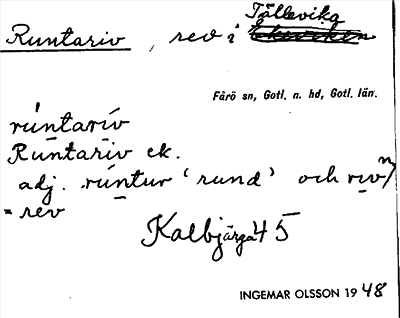 Tällevika
Runtariv , rev i
Fårö sn, Gotl. n. hd, Gotl. län.
rúntarív
Runtariv ek.
adj. rúntur ‘rund’ och rıv n/
= rev
Kalbjärga 45
INGEMAR OLSSON 1948